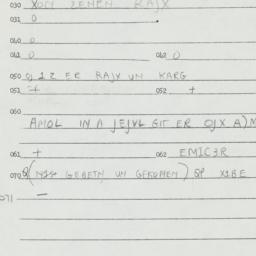 030 XOM ZENEN RAJX
031 0
040 0
041 0 042 0
050 Q 1Z ER RAJX UN KARG
051 + 052 +
060
AMOL IN A JEJVL GIT ER OJX A)M
061 + 062 EMIC3R
070 GEBETN UN GEKUMEN) QP X1BE
071 —